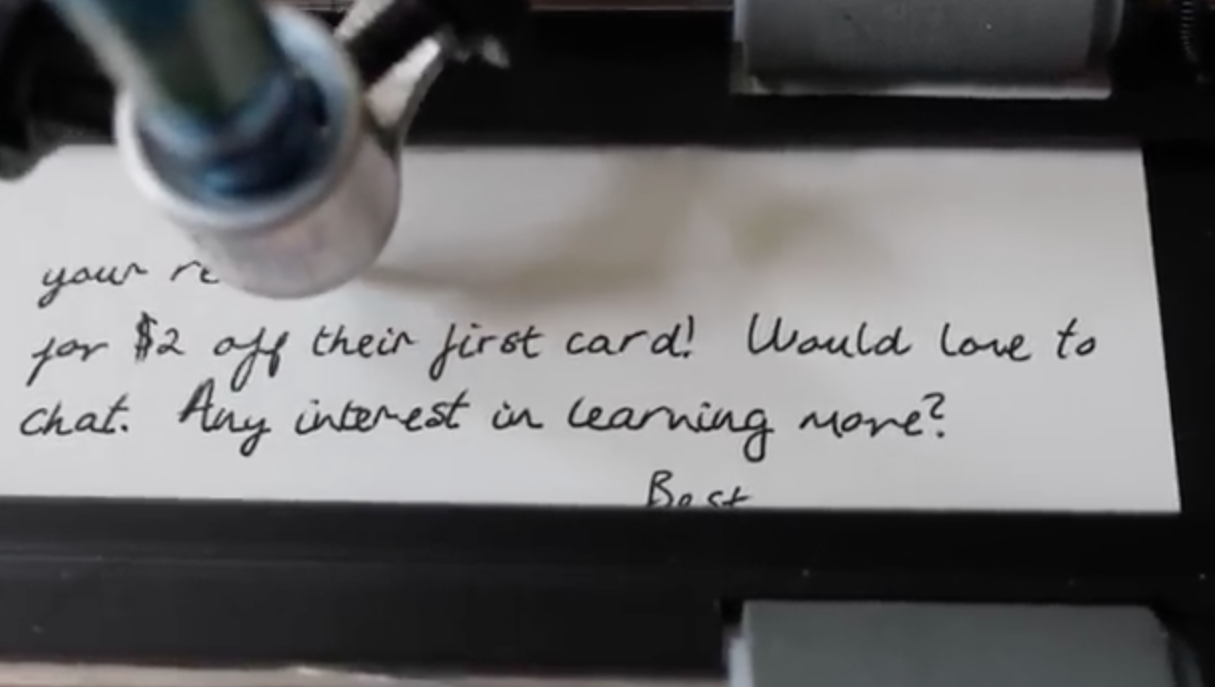 your
for $2 off their first card! Would love to
chat. Any interest in learning more?
Best